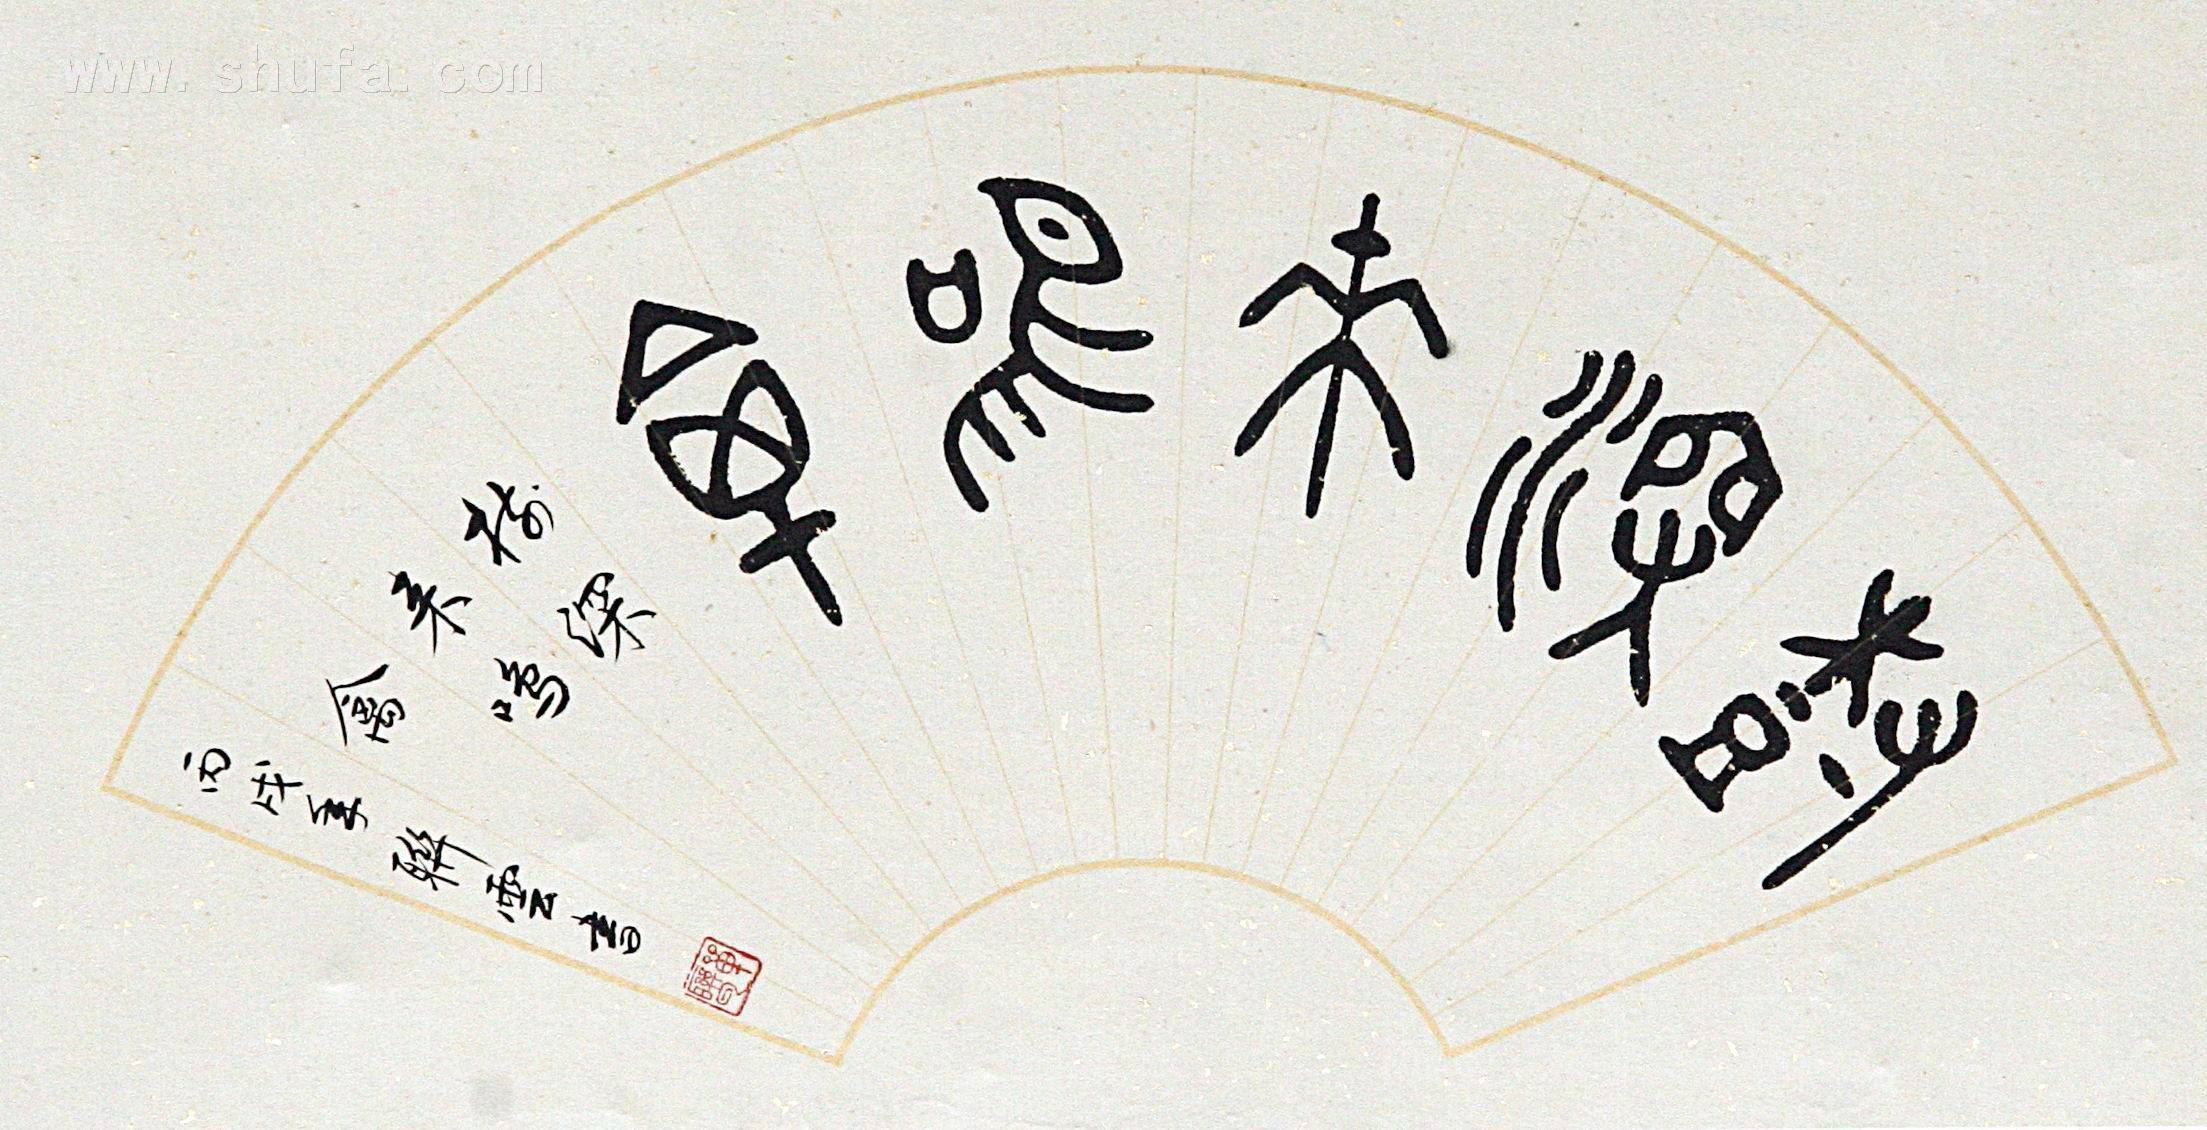 www.shufa.com
樹深來鳴禽
樹深
来鳴
禽
丙戌年雲書